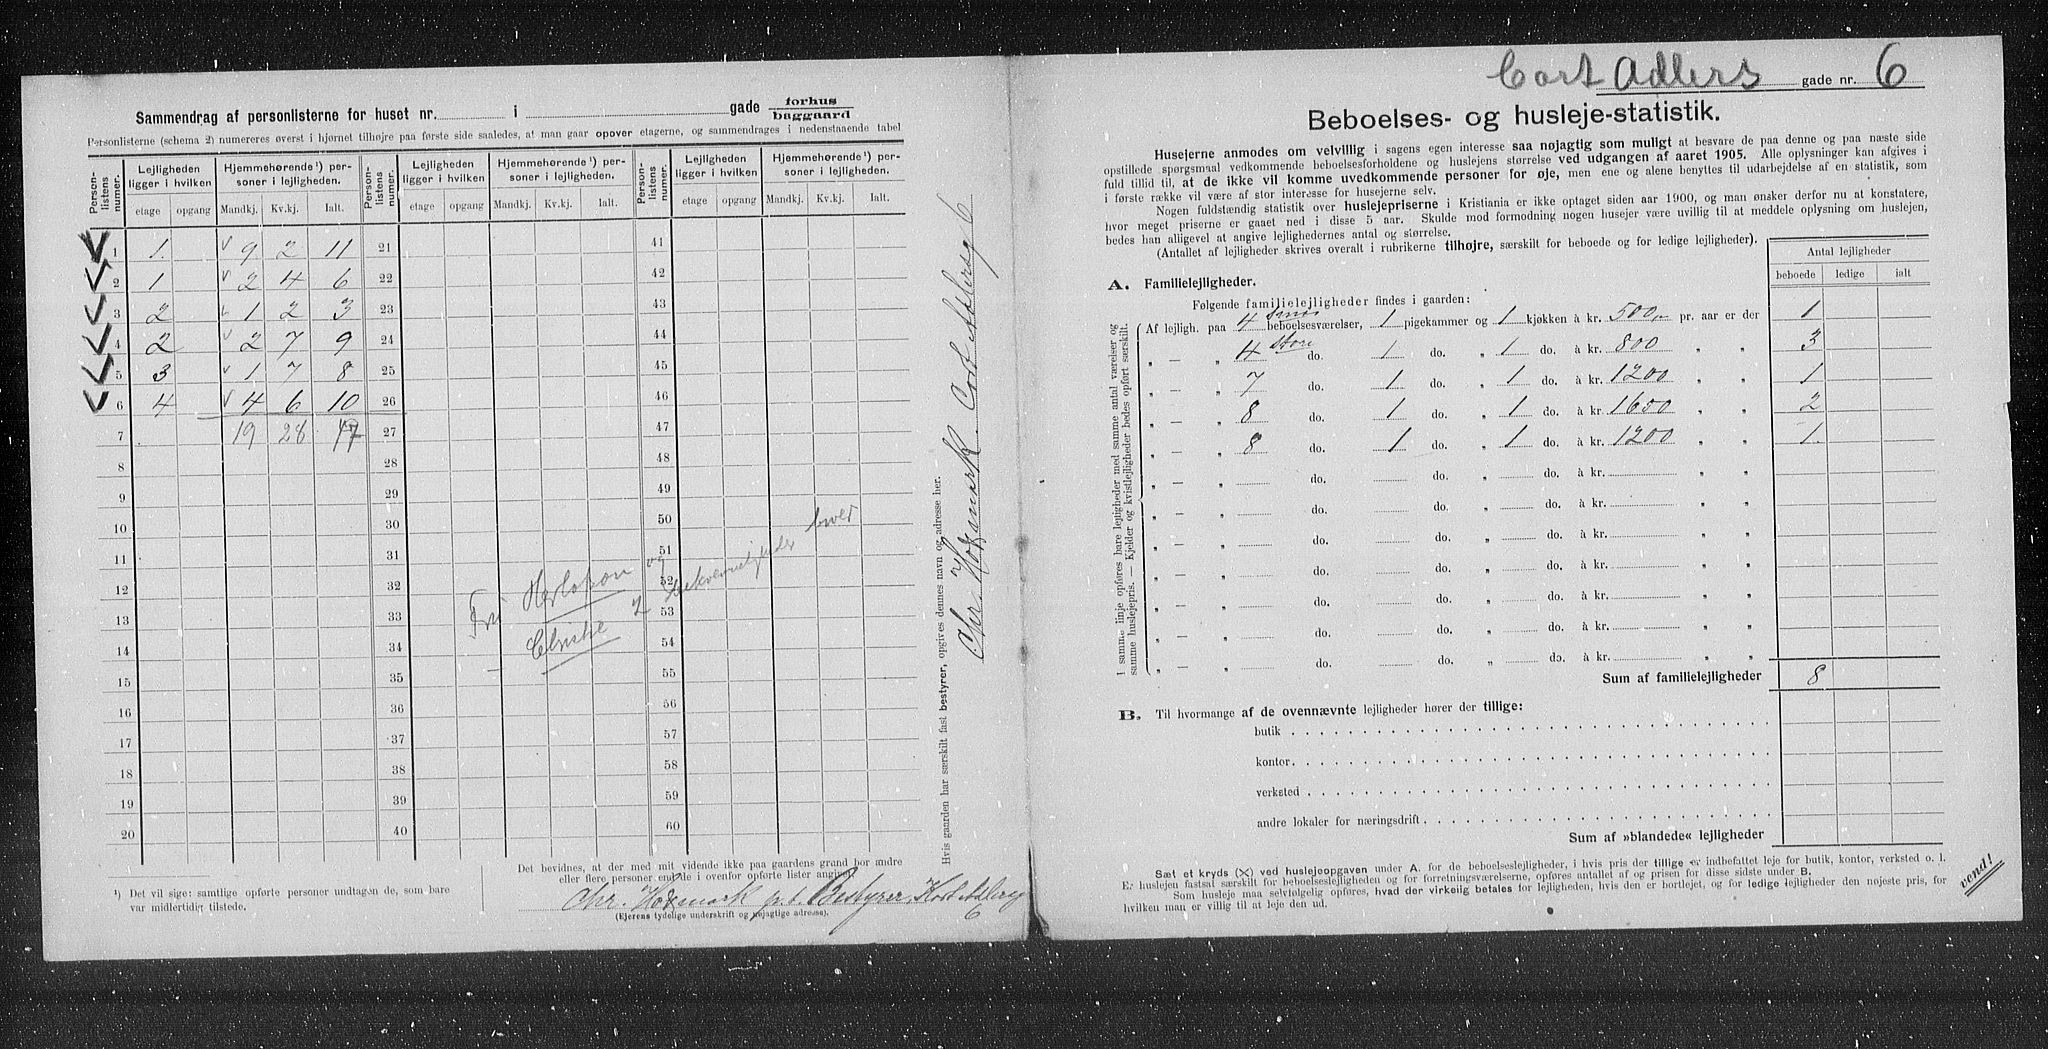 Sammendrag af personlisterne for huset nr. i gade forhus
baggaard
Personlisterne (schema 2) numereres øverst i hjørnet tilhøjre paa første side saaledes, at man gaar opover etagerne, og sammendrages i nedenstaaende tabel
Person-listens numer. Lejligheden ligger i hvilken Hjemmehørende¹) personer i lejligheden. Person-listens numer. Lejligheden ligger i hvilken Hjemmehørende¹) personer i lejligheden. Person-listens numer. Lejligheden ligger i hvilken Hjemmehørende¹) personer i lejligheden.
etage opgang Mandkj. Kv.kj. Ialt. etage opgang Mandkj. Kv.kj. Ialt. etage opgang Mandkj. Kv.kj. Ialt.
1 1. 9 2 11 21 41
2 1 2 4 6 22 42
3 2 1 2 3 23 43
4 2 2 7 9 24 44
5 3 1 7 8 25 45
6 4 4 6 10 26 46
7 19 28 47 27 47
8 28 48
9 29 49
10 30 50
11 31 51
12 32 52
13 33 53
14 34 54
15 35 55
16 36 56
17 37 57
18 38 58
19 39 59
20 40 60
og
2 bekvemeligheder
¹) Det vil sige: samtlige opførte personer undtagen de, som bare
var midlertidig tilstede.
Det bevidnes, at der med mit vidende ikke paa gaardens grund bor andre
eller flere personer end de i ovenfor opførte lister angivne
Chr. Hoxmark p. t. Bestyrer, Kort Adlersg
6
(Ejerens tydelige underskrift og nøjagtige adresse).
Hvis gaarden har særskilt fast bestyrer, opgives dennes navn og adresse her.
Chr. Hoxmark. Cort Adlersg 6
Cort Adlers gade nr. 6
Beboelses- og husleje-statistik.
Husejerne anmodes om velvillig i sagens egen interesse saa nøjagtig som muligt at besvare de paa denne og paa næste side
opstillede spørgsmaal vedkommende beboelsesforholdene og huslejens størrelse ved udgangen af aaret 1905. Alle oplysninger kan afgives i
fuld tillid til, at de ikke vil komme uvedkommende personer for øje, men ene og alene benyttes til udarbejdelse af en statistik, som
i første række vil være af stor interesse for husejerne selv.
Nogen fuldstændig statistik over huslejepriserne i Kristiania er ikke optaget siden aar 1900, og man ønsker derfor nu at konstatere,
hvor meget priserne er gaaet ned i disse 5 aar. Skulde mod formodning nogen husejer være uvillig til at meddele oplysning om huslejen,
bedes han alligevel at angive lejlighedernes antal og størrelse.
(Antallet af lejligheder skrives overalt i rubrikerne tilhøjre, særskilt for beboede og for ledige lejligheder).
Antal lejligheder
beboede ledige ialt
A. Familielejligheder.
Følgende familielejligheder findes i gaarden:
Af lejligh. paa 4 smaa beboelsesværelser, 1 pigekammer og 1 kjøkken à kr. 500,- pr. aar er der 1
„ — „ 4 store do. 1 do. „ 1 do. à kr. 800 „ „ 3
„ — „ 7 do. 1 do. „ 1 do. à kr. 1200 „ „ 1
„ — „ 8 do. 1 do. „ 1 do. à kr. 1650 „ „ 2
„ — „ 8 do. 1 do. „ 1 do. à kr. 1200 „ „ 1.
„ — „ do. do. „ do. à kr. „ „
„ — „ do. do. „ do. à kr. „ „
„ — „ do. do. „ do. à kr. „ „
„ — „ do. do. „ do. à kr. „ „
„ — „ do. do. „ do. à kr. „ „
„ — „ do. do. „ do. à kr. „ „
„ — „ do. do. „ do. à kr. „ „
I samme linje opføres bare lejligheder med samme antal værelser og
samme huslejepris. — Kjelder og kvistlejligheder bedes opført særskilt.
Sum af familielejligheder 8
B. Til hvormange af de ovennævnte lejligheder hører der tillige:
butik
kontor
verksted
andre lokaler for næringsdrift
Sum af »blandede« lejligheder
Sæt et kryds (X) ved huslejeopgaven under A. for de beboelseslejligheder, i hvis pris der tillige er indbefattet leje for butik, kontor, verksted o. l.
Er huslejen fastsat særskilt for beboelseslejligheden og for forretningsværelserne, opføres antallet af og prisen for disse sidste under B.
Som husleje maa selvfølgelig opføres, hvad der virkelig betales for lejligheden, hvis den er bortlejet, og for ledige lejligheder den nøjeste pris, for
hvilken man er villig til at leje den ud.
vend!